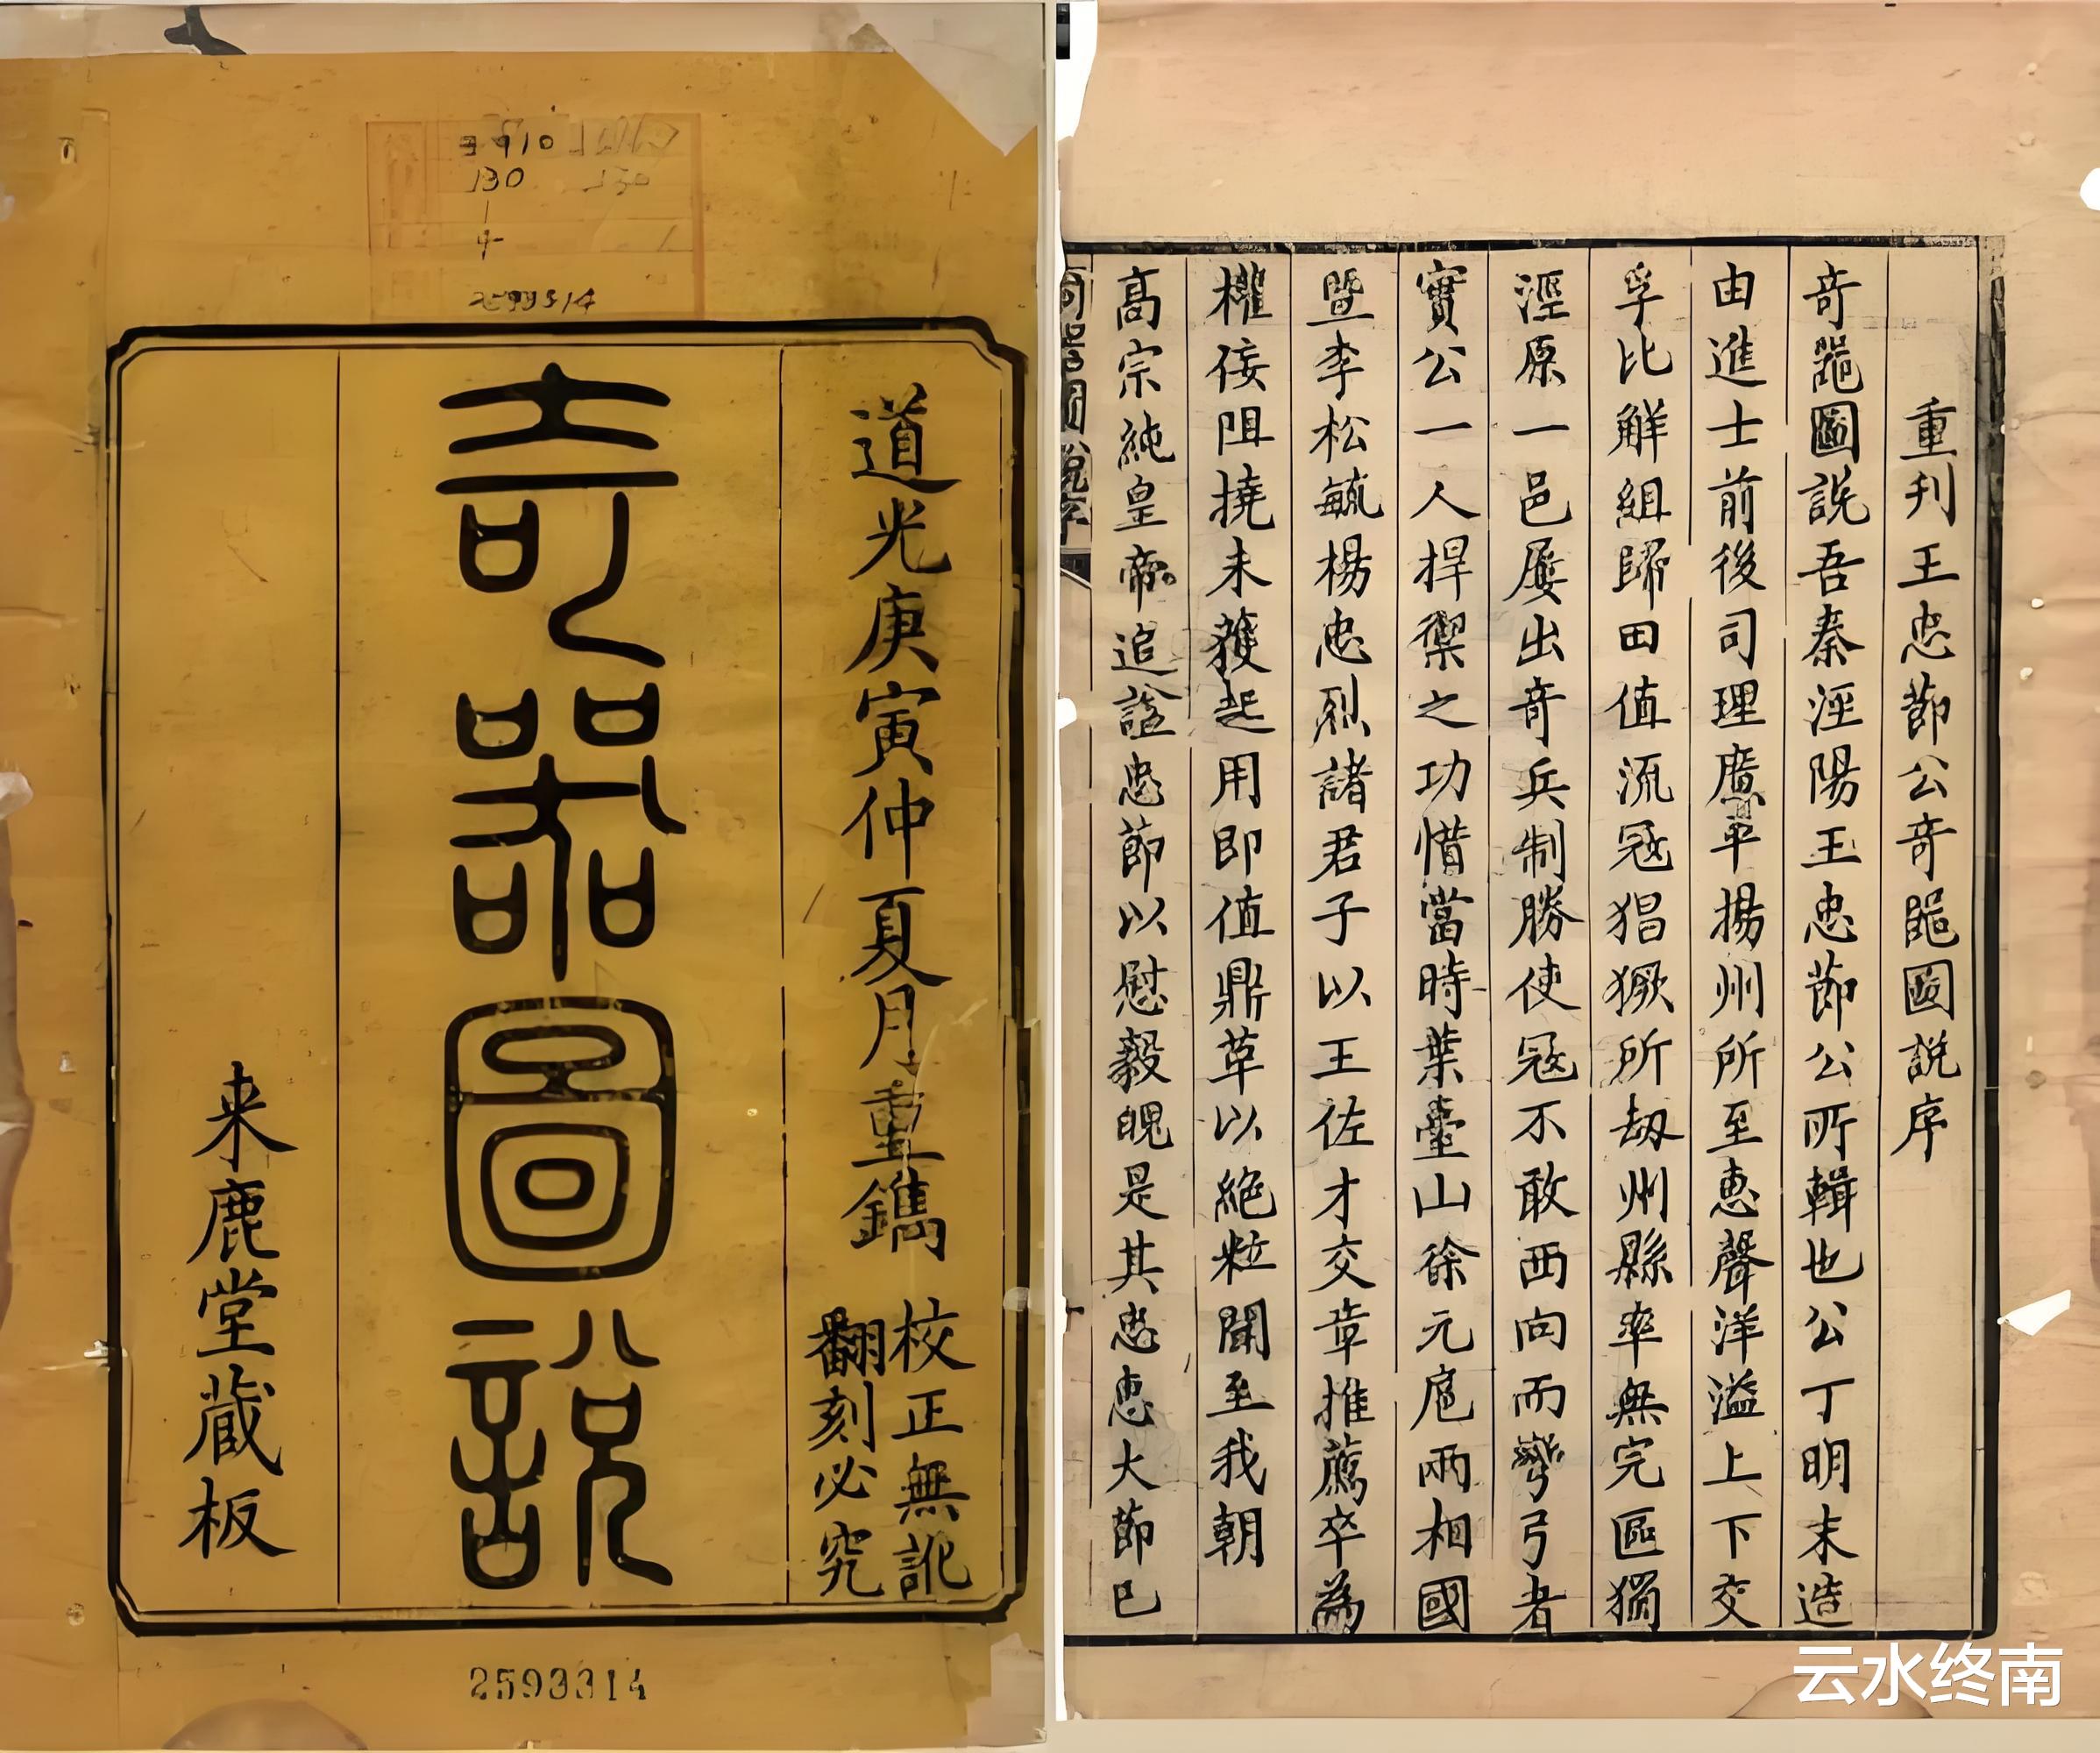 道光庚寅仲夏月重鐫
校正無訛
翻刻必究
奇器圖說
来鹿堂藏板
130
4
2593314
重刊王忠節公奇噐圖說序
奇噐圖說吾秦涇陽王忠節公所輯也公丁明末造
由進士前後司理廣平揚州所至惠聲洋溢上下交
孚比解組歸田值流冦猖獗所刼州縣率無完區獨
涇原一邑屡出奇兵制勝使冦不敢西向而彎弓者
實公一人捍禦之功惜當時葉臺山徐元扈兩相國
暨李松毓楊忠烈諸君子以王佐才交章推薦卒為
權佞阻撓未獲起用即值鼎革以絕粒聞至我朝
高宗純皇帝追諡忠節以慰毅魄是其忠惠大節已
云水终南